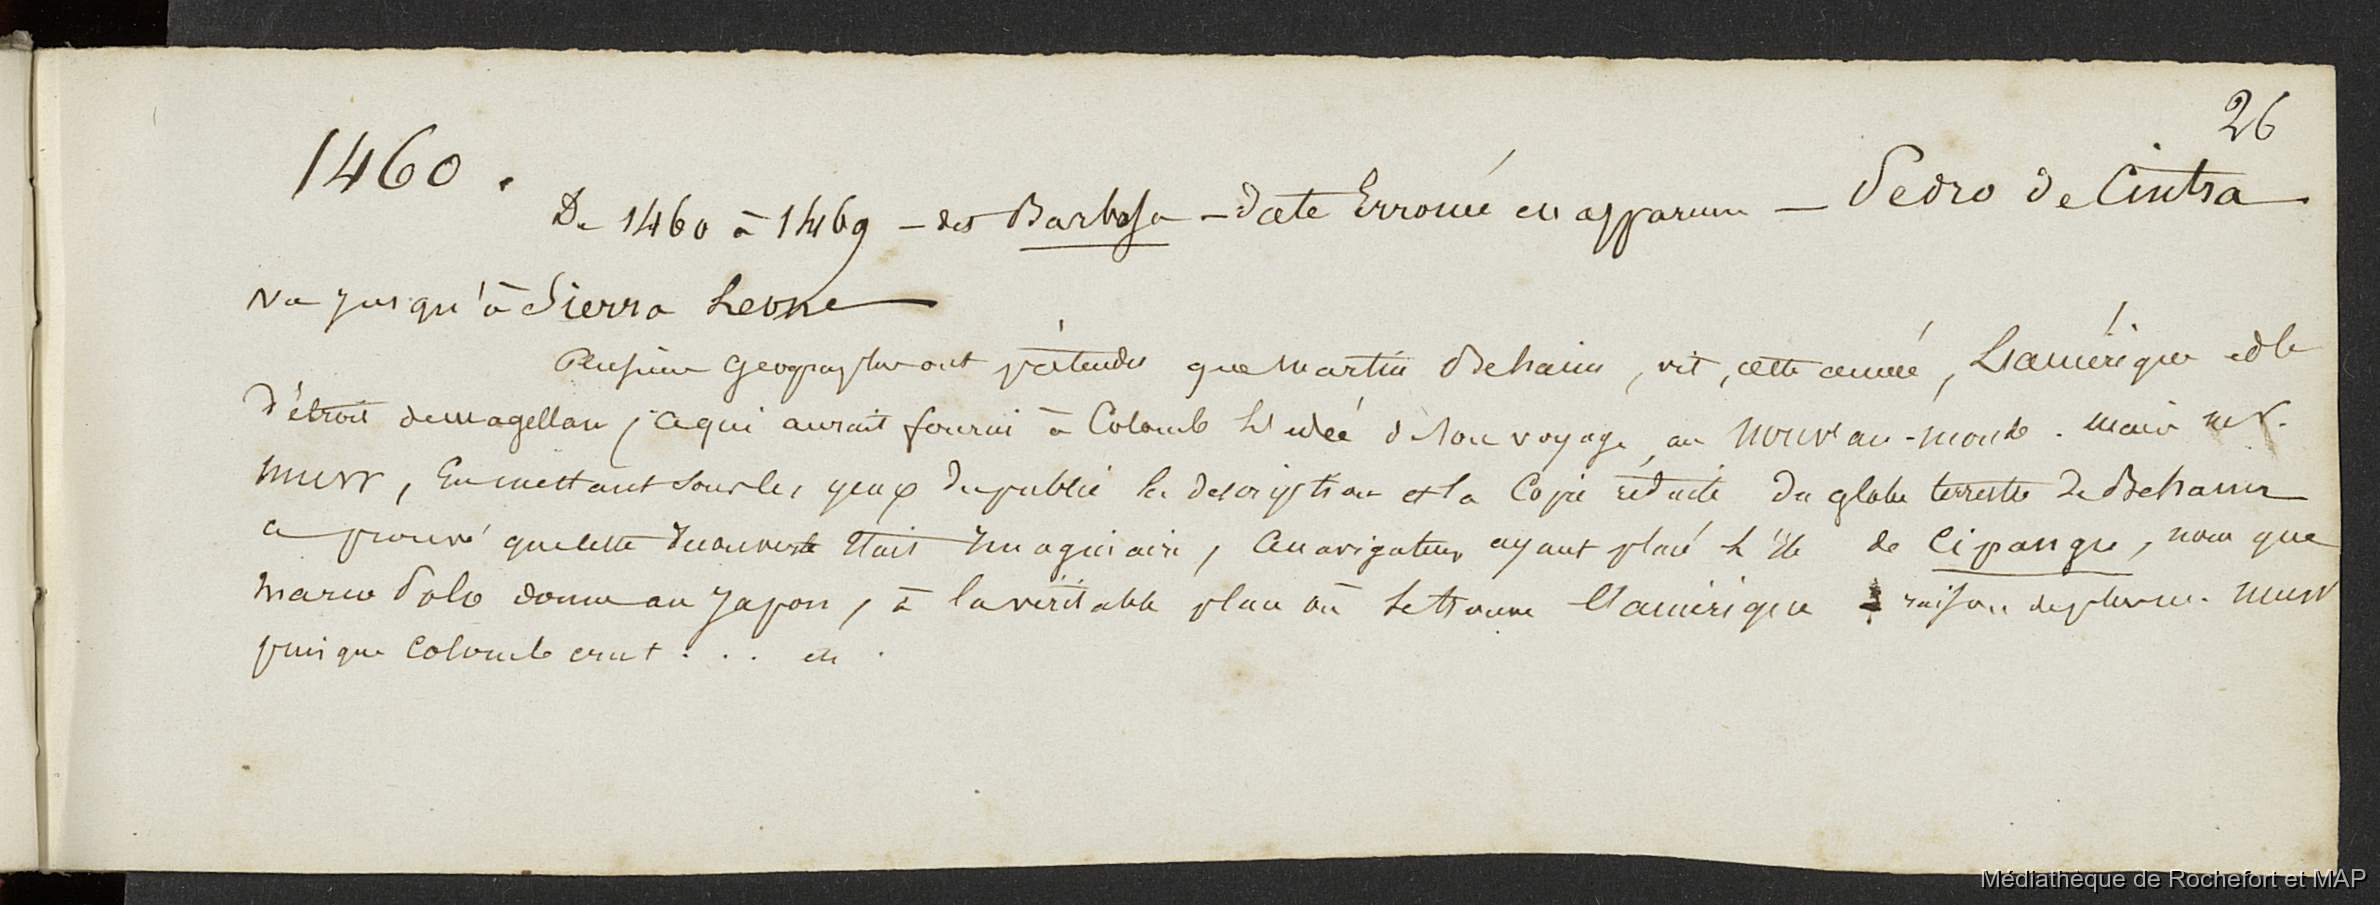 26
1460.
De 1460 à 1469 - des Barbosa - date Erronée en apparence - Pedro de Cintra
va jusqu'à Sierra Leone
Plusieurs geographes ont prétendu que Martin Behaim, vit, cette année, L'amérique et le
détroit de magellan, ce qui aurait fourni à Colomb L'idée de son voyage au nouveau-monde. mais
murr, En mettant sous les yeux du public la description et la Copie réduite du globe terrestre de Behaim
a prouvé que cette découverte était Imaginaire, Ce navigateur ayant placé L'île de Cipangu, nom que
Marco Polo donne au Japon, à la véritable place où se trouve L'amérique raison de plus murr
puisque Colomb crut . . . etc.
Médiathèque de Rochefort et MAP